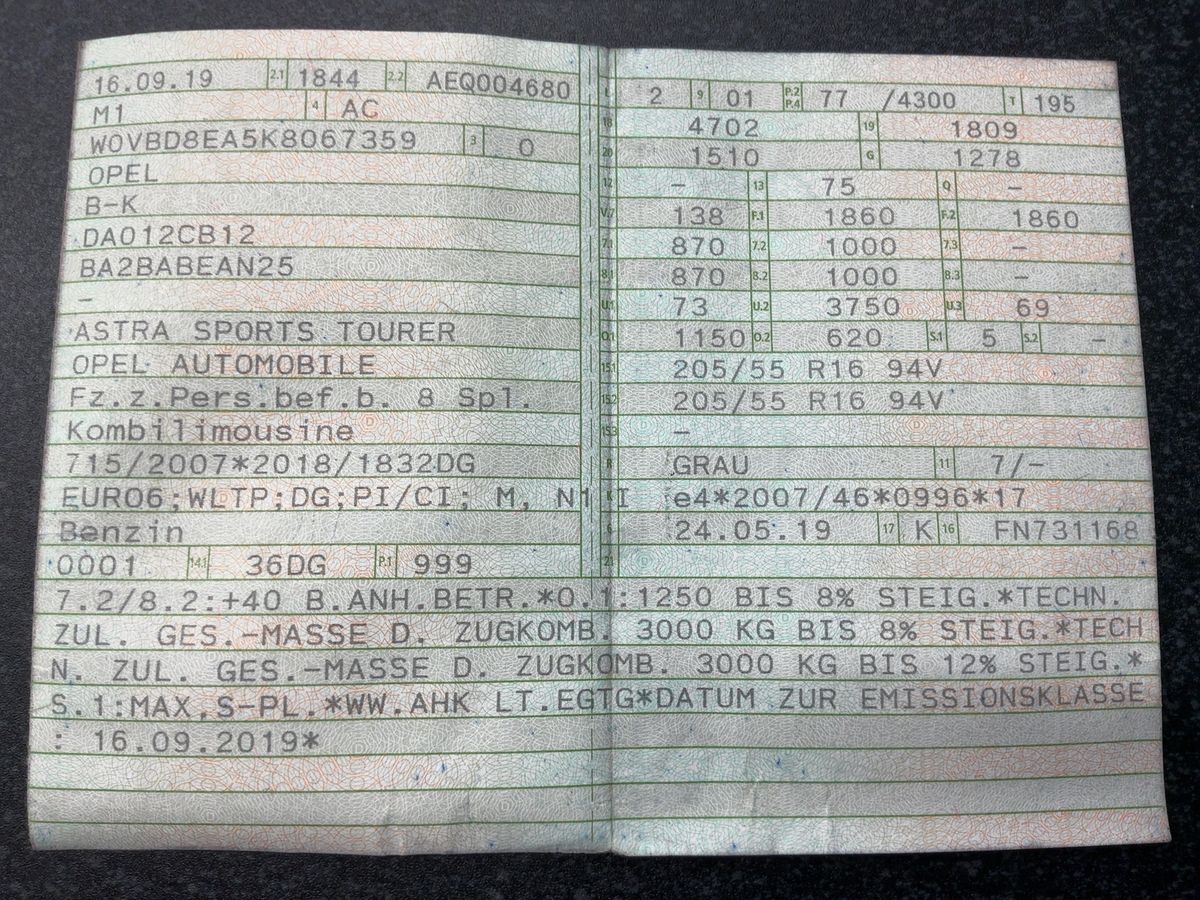 16.09.19 2.1 1844 2.2 AEQ004680
M1 4 AC
W0VBD8EA5K8067359 3 0
OPEL
B-K
DA012CB12
BA2BABEAN25
-
ASTRA SPORTS TOURER
OPEL AUTOMOBILE
Fz.z.Pers.bef.b. 8 Spl.
Kombilimousine
715/2007*2018/1832DG
EURO6;WLTP;DG;PI/CI; M, N1 I
Benzin
0001 14.1 36DG P.1 999
L 2 9 01 P.2 P.4 77 /4300 T 195
18 4702 19 1809
20 1510 G 1278
12 - 13 75 Q -
V.7 138 F.1 1860 F.2 1860
7.1 870 7.2 1000 7.3 -
8.1 870 8.2 1000 8.3 -
U.1 73 U.2 3750 U.3 69
O.1 1150 O.2 620 S.1 5 S.2 -
15.1 205/55 R16 94V
15.2 205/55 R16 94V
15.3 -
R GRAU 11 7/-
K e4*2007/46*0996*17
6 24.05.19 17 K 16 FN731168
21
7.2/8.2:+40 B.ANH.BETR.*O.1:1250 BIS 8% STEIG.*TECHN.
ZUL. GES.-MASSE D. ZUGKOMB. 3000 KG BIS 8% STEIG.*TECH
N. ZUL. GES.-MASSE D. ZUGKOMB. 3000 KG BIS 12% STEIG.*
S.1:MAX.S-PL.*WW.AHK LT.EGTG*DATUM ZUR EMISSIONSKLASSE
: 16.09.2019*